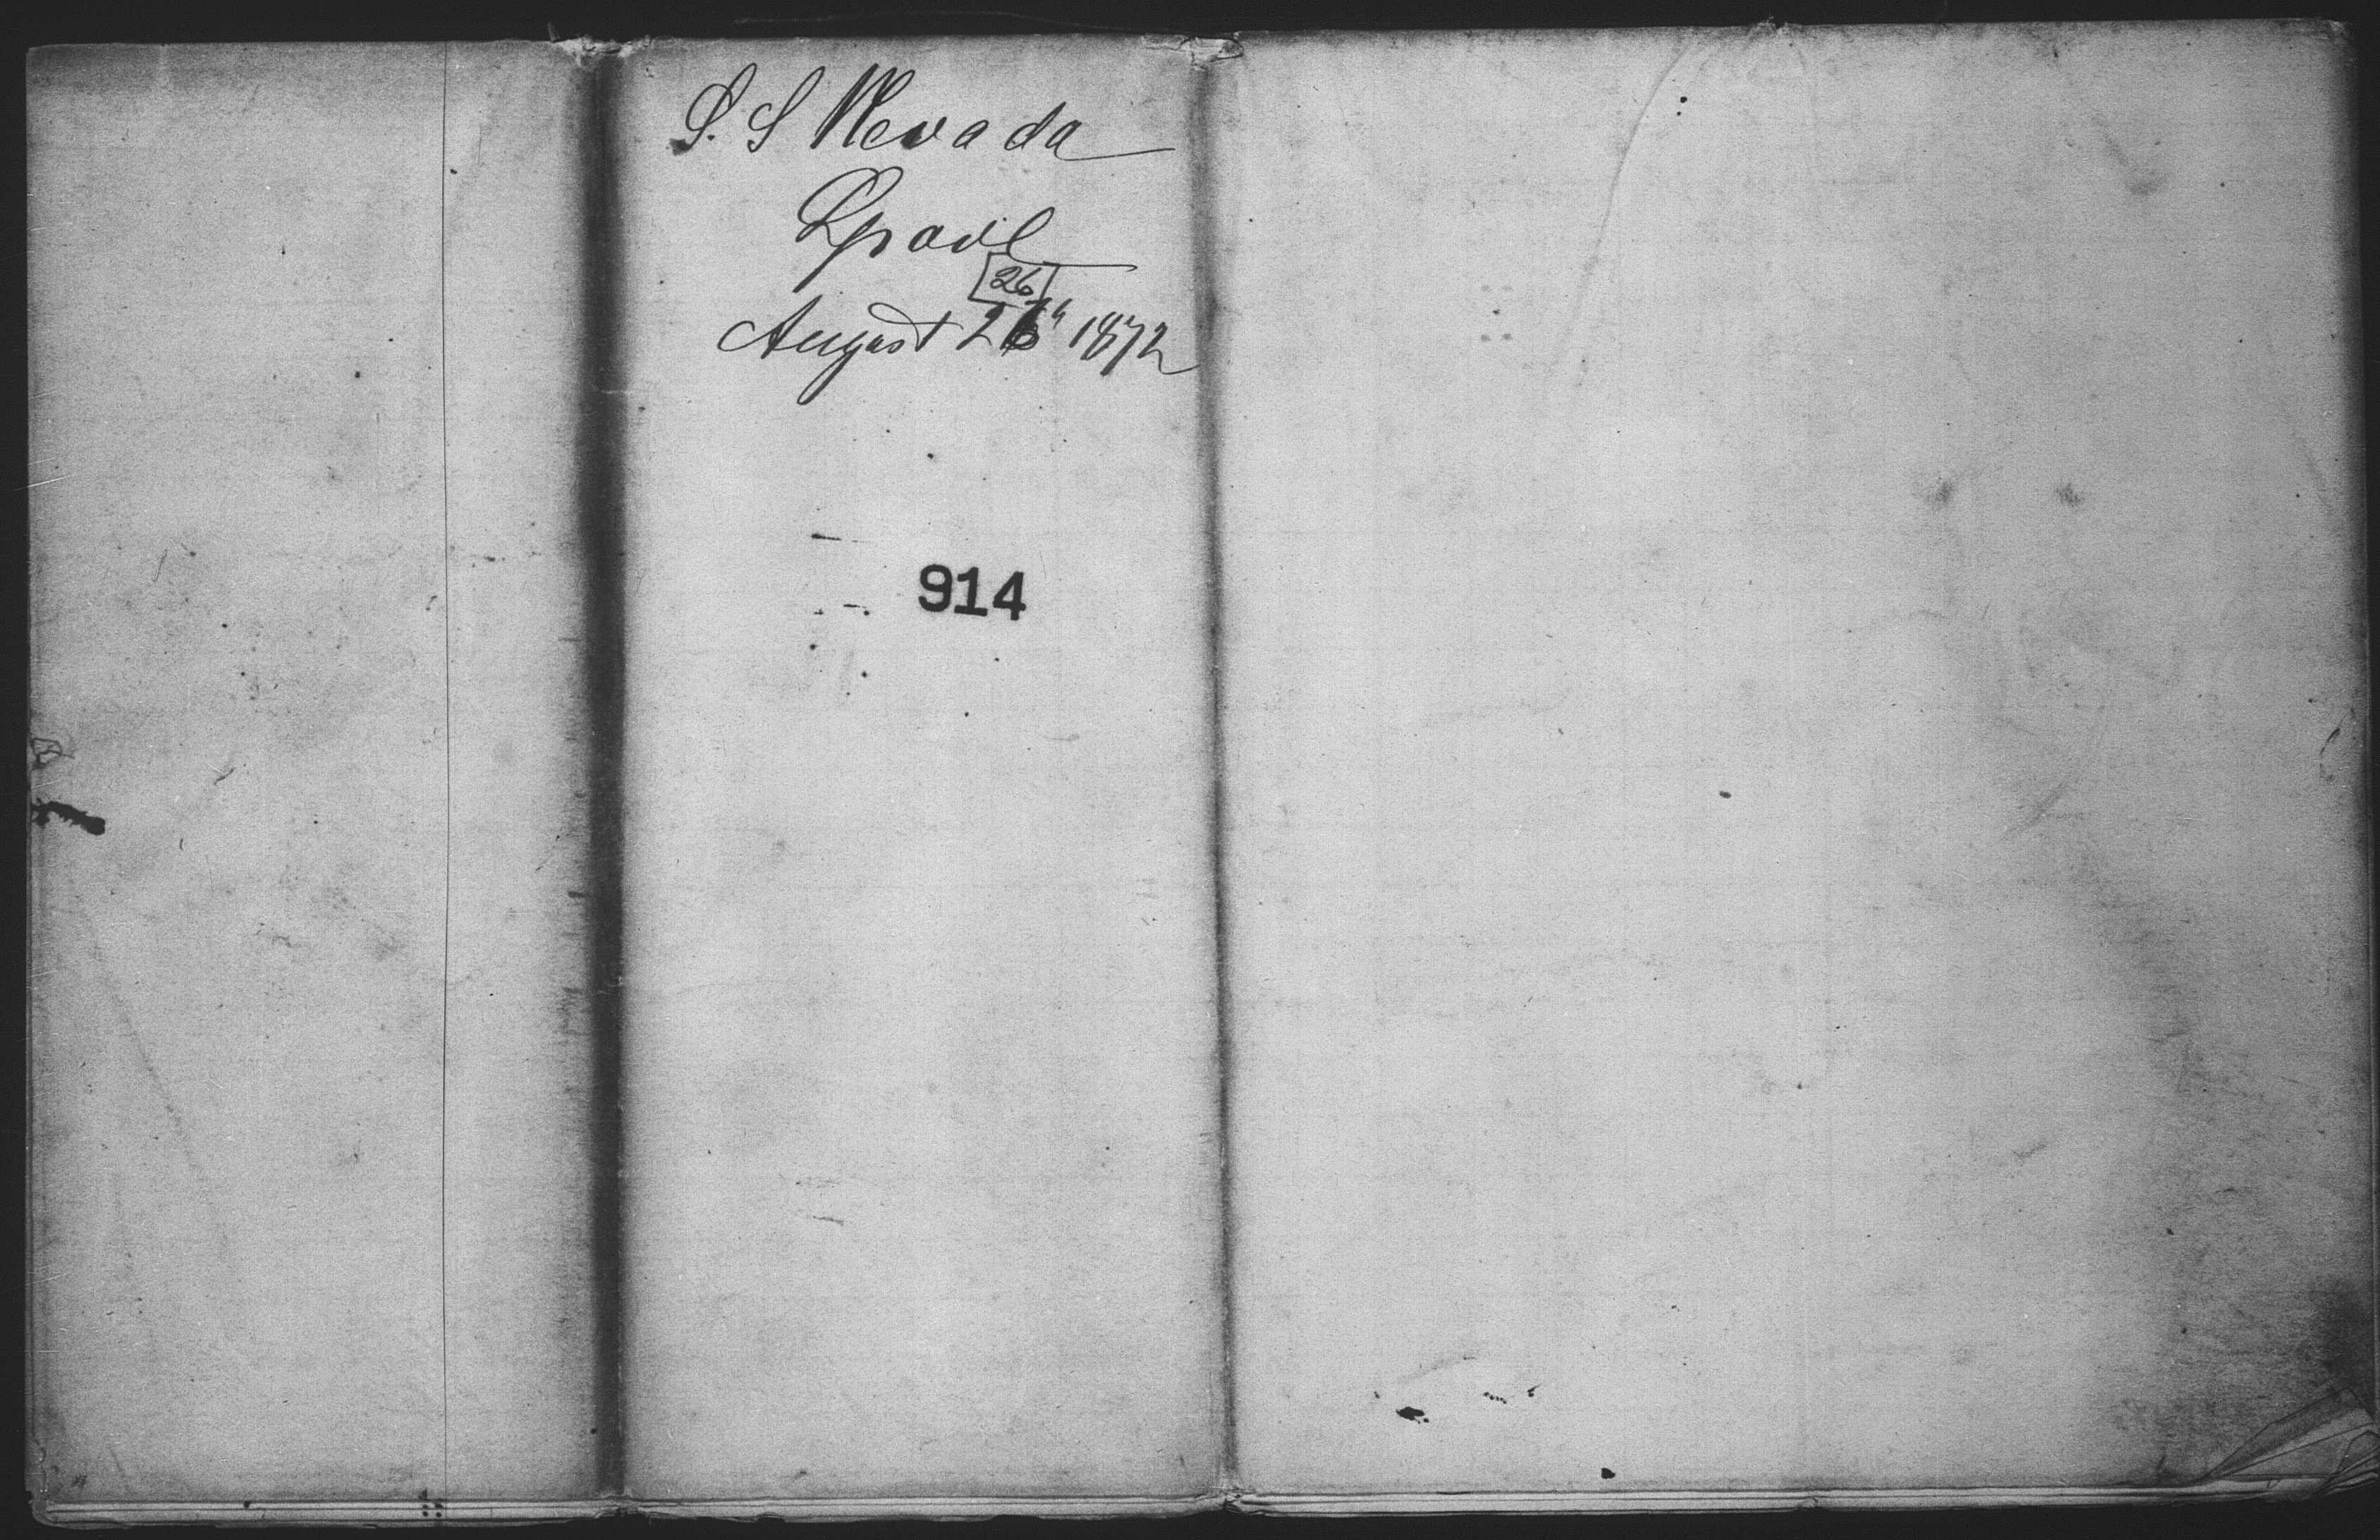 S. S Nevada
Lpool
26
August 26" 1872
914